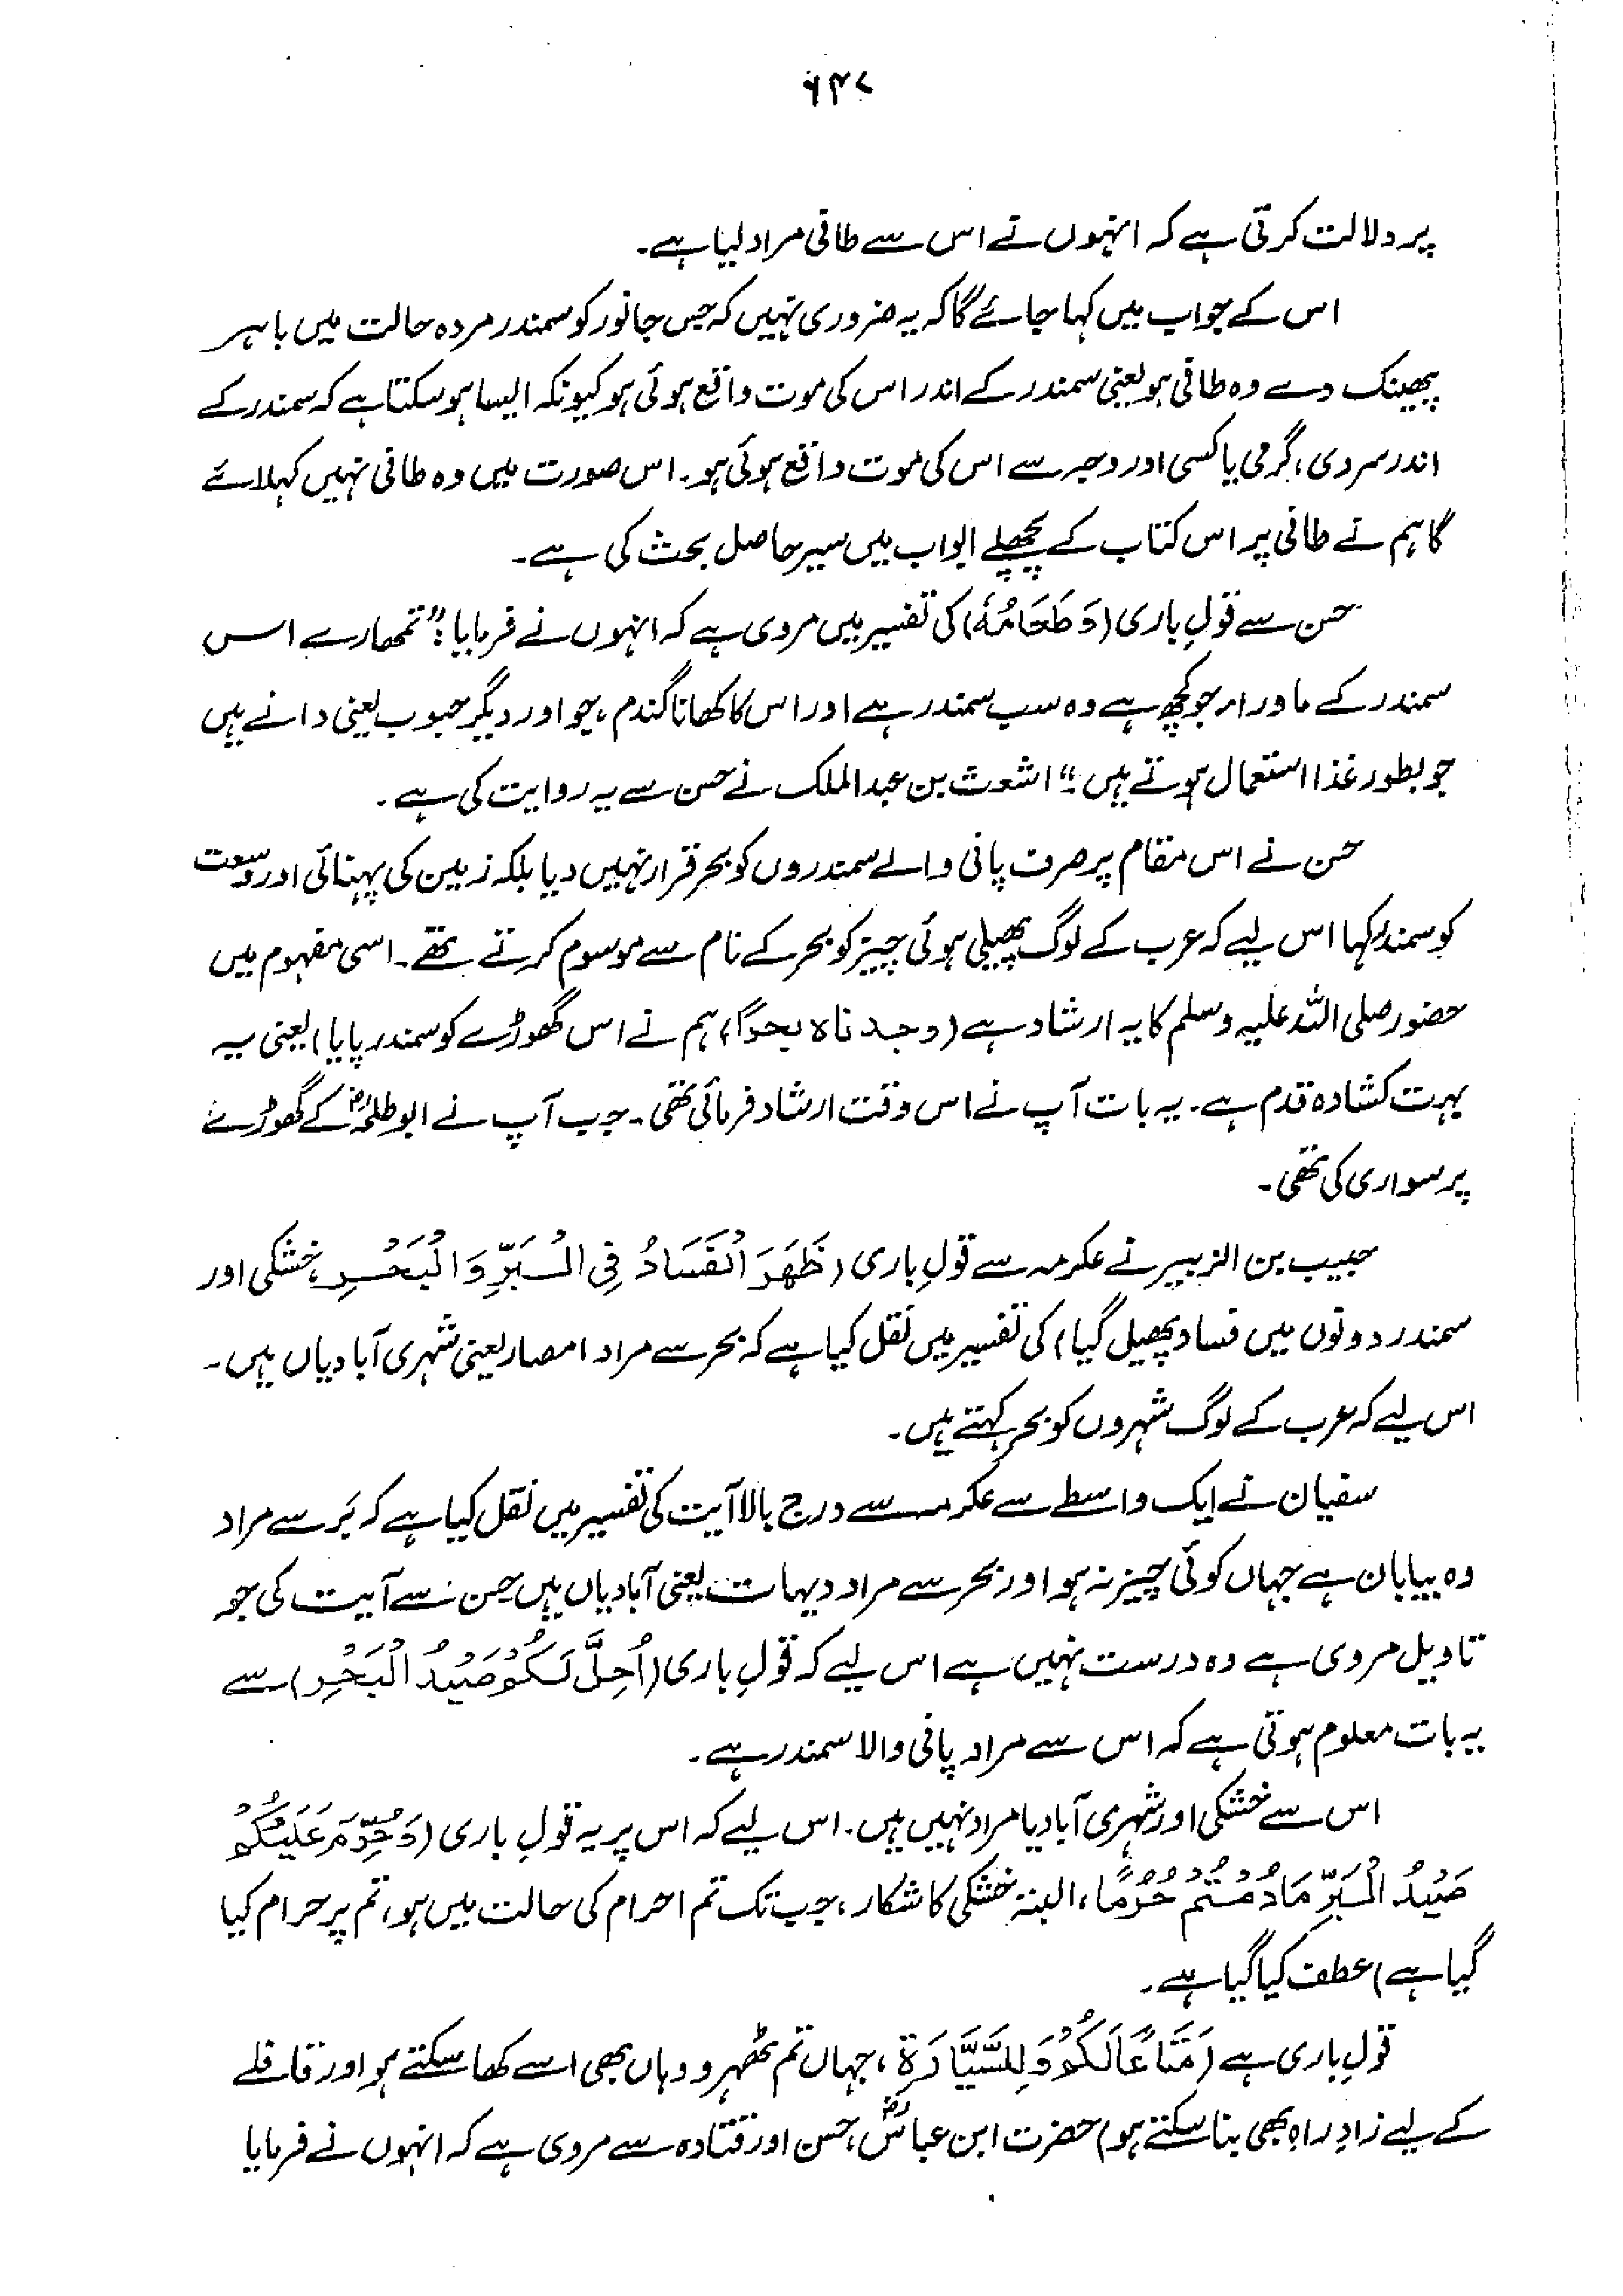 ۶۴۷
پر دلالت کرتی ہے کہ انہوں نے اس سے طافی مراد لیا ہے۔
اس کے جواب میں کہا جائے گا کہ یہ ضروری نہیں کہ جس جانور کو سمندر مردہ حالت میں باہر
پھینک دے وہ طافی ہو یعنی سمندر کے اندر اس کی موت واقع ہوئی ہو کیونکہ ایسا ہو سکتا ہے کہ سمندر کے
اندر سردی، گرمی یا کسی اور وجہ سے اس کی موت واقع ہوئی ہو۔ اس صورت میں وہ طافی نہیں کہلائے
گا ہم نے طافی پر اس کتاب کے پچھلے ابواب میں سیر حاصل بحث کی ہے۔
حسن سے قولِ باری (وَطَعَامُهُ) کی تفسیر میں مروی ہے کہ انہوں نے فرمایا: "تمھارے اس
سمندر کے ماوراء جو کچھ ہے وہ سب سمندر ہے اور اس کا کھانا گندم، جو اور دیگر حبوب یعنی دانے ہیں
جو بطور غذا استعمال ہوتے ہیں۔" اشعث بن عبدالملک نے حسن سے یہ روایت کی ہے۔
حسن نے اس مقام پر صرف پانی والے سمندروں کو بحر قرار نہیں دیا بلکہ زمین کی پہنائی اور وسعت
کو سمندر کہا اس لیے کہ عرب کے لوگ پھیلی ہوئی چیز کو بحر کے نام سے موسوم کرتے تھے۔ اسی مفہوم میں
حضور صلی اللہ علیہ وسلم کا یہ ارشاد ہے (وجدناہ بحراً، ہم نے اس گھوڑے کو سمندر پایا) یعنی یہ
بہت کشادہ قدم ہے۔ یہ بات آپ نے اس وقت ارشاد فرمائی تھی۔ جب آپ نے ابوطلحہؓ کے گھوڑے
پر سواری کی تھی۔
حبیب بن الزبیر نے عکرمہ سے قولِ باری (ظَهَرَ الْفَسَادُ فِي الْبَرِّ وَالْبَحْرِ، خشکی اور
سمندر دونوں میں فساد پھیل گیا) کی تفسیر میں نقل کیا ہے کہ بحر سے مراد امصار یعنی شہری آبادیاں ہیں۔
اس لیے کہ عرب کے لوگ شہروں کو بحر کہتے ہیں۔
سفیان نے ایک واسطے سے عکرمہ سے درج بالا آیت کی تفسیر میں نقل کیا ہے کہ بَر سے مراد
وہ بیابان ہے جہاں کوئی چیز نہ ہو اور بحر سے مراد دیہات یعنی آبادیاں ہیں حسن سے آیت کی جو
تاویل مروی ہے وہ درست نہیں ہے اس لیے کہ قولِ باری (أُحِلَّ لَكُمْ صَيْدُ الْبَحْرِ) سے
یہ بات معلوم ہوتی ہے کہ اس سے مراد پانی والا سمندر ہے۔
اس سے خشکی اور شہری آبادیا مراد نہیں ہیں۔ اس لیے کہ اس پر یہ قولِ باری (وَحُرِّمَ عَلَيْكُمْ
صَيْدُ الْبَرِّ مَا دُمْتُمْ حُرُمًا، البتہ خشکی کا شکار، جب تک تم احرام کی حالت میں ہو، تم پر حرام کیا
گیا ہے) عطف کیا گیا ہے۔
قولِ باری ہے (مَتَاعًا لَكُمْ وَلِلسَّيَّارَةِ، جہاں تم ٹھہرو وہاں بھی اسے کھا سکتے ہو اور قافلے
کے لیے زادِ راہ بھی بنا سکتے ہو) حضرت ابن عباسؓ، حسن اور قتادہ سے مروی ہے کہ انہوں نے فرمایا